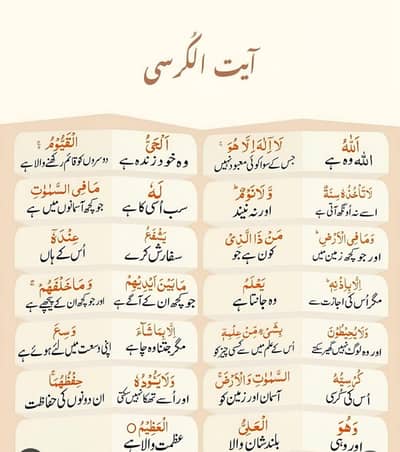 آیت الکُرسی
اَللّٰهُ لَاۤ اِلٰهَ اِلَّا هُوَ ۚ اَلْحَیُّ الْقَیُّوْمُ ۚ
اللہ وہ ہے جس کے سوا کوئی معبود نہیں وہ خود زندہ ہے دوسروں کو قائم رکھنے والا ہے
لَا تَاْخُذُهٗ سِنَةٌ وَّ لَا نَوْمٌ ؕ لَهٗ مَا فِی السَّمٰوٰتِ
اسے نہ اونگھ آتی ہے اور نہ نیند سب اُسی کا ہے جو کچھ آسمانوں میں ہے
وَ مَا فِی الْاَرْضِ ؕ مَنْ ذَا الَّذِیْ یَشْفَعُ عِنْدَهٗۤ
اور جو کچھ زمین میں کون ہے جو سفارش کرے اُس کے ہاں
اِلَّا بِاِذْنِهٖ ؕ یَعْلَمُ مَا بَیْنَ اَیْدِیْهِمْ وَ مَا خَلْفَهُمْ ۚ
مگر اُس کی اجازت سے وہ جانتا ہے جو کچھ ان کے آگے ہے اور جو کچھ ان کے پیچھے ہے
وَ لَا یُحِیْطُوْنَ بِشَیْءٍ مِّنْ عِلْمِهٖۤ اِلَّا بِمَا شَآءَ ۚ وَسِعَ
اور وہ لوگ نہیں گھیر سکتے اُس کے علم میں سے کسی چیز کو مگر جتنا وہ چاہے اپنی وسعت میں لئے ہوئے ہے
كُرْسِیُّهُ السَّمٰوٰتِ وَ الْاَرْضَ ۚ وَ لَا یَـُٔوْدُهٗ حِفْظُهُمَا ۚ
اُس کی کُرسی آسمان اور زمین کو اور اُسے تھکا نہیں سکتی ان دونوں کی حفاظت
وَ هُوَ الْعَلِیُّ الْعَظِیْمُ ○
اور وہی بلند شان والا عظمت والا ہے